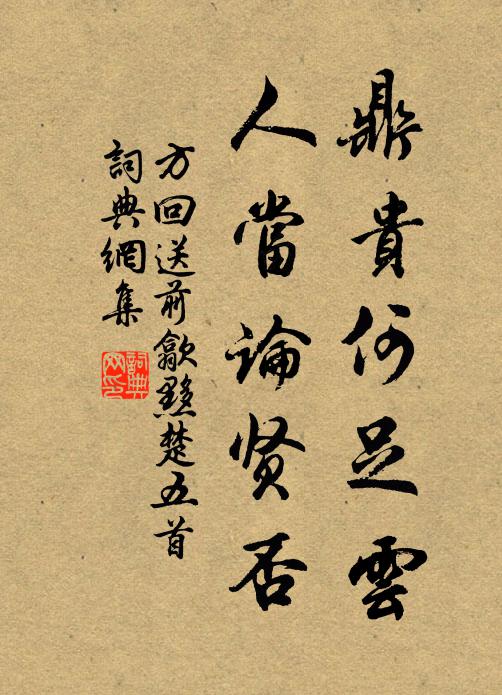 鼎貴何足雲
人當論贤否
方回送前歙黟楚五首
詞典網集
詞典网印